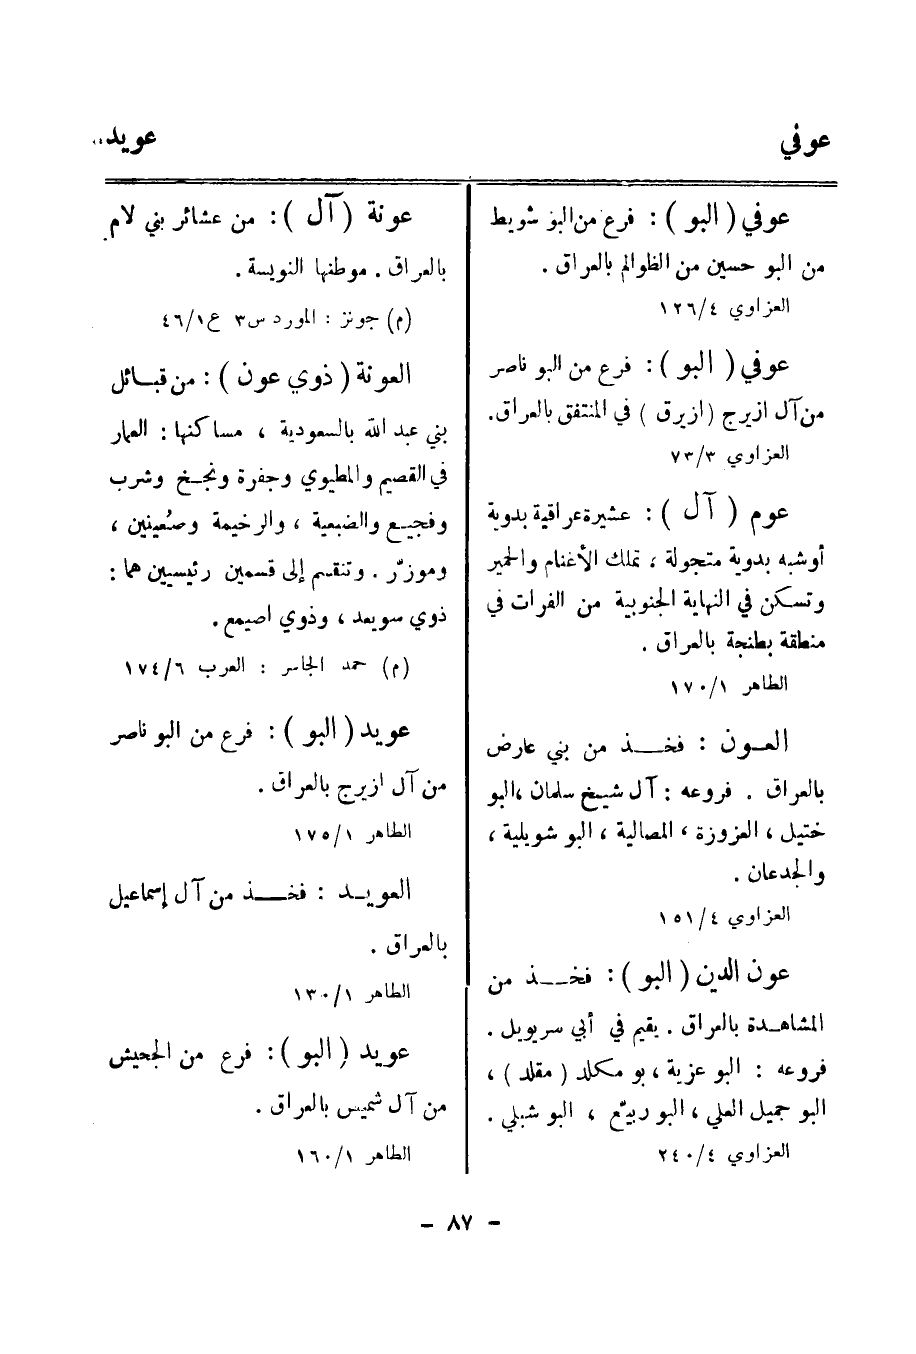 عوفي
عويد..
عوفي (البو): فرع من البو شويط
من البو حسين من الظوالم بالعراق.
العزاوي ١٢٦/٤
عوفي (البو): فرع من البو ناصر
من آل ازيرج (ازيرق) في المنتفق بالعراق.
العزاوي ٧٣/٣
عوم (آل): عشيرة عراقية بدوية
أوشبه بدوية متجولة، تملك الأغنام والحمير
وتسكن في النهاية الجنوبية من الفرات في
منطقة بطنجة بالعراق.
الطاهر ١٧٠/١
العون: فخذ من بني عارض
بالعراق. فروعه: آل شيخ سلمان، البو
ختيل، العزوزة، المصالية، البو شويلية،
والجدعان.
العزاوي ١٥١/٤
عون الدن (البو): فخذ من
المشاهدة بالعراق. يقيم في أبي سريويل.
فروعه: البو عزبة، بو مكلد (مقلد)،
البو جميل العلي، البو ربيّع، البو شبلي.
العزاوي ٢٤٠/٤
عونة (آل): من عشائر بني لام
بالعراق. موطنها النويسة.
(م) جونز: المورد س٣ ع٤٦/١
العونة (ذوي عون): من قبائل
بني عبد الله بالسعودية، مساكنها: العمار
في القصيم والمطيوي وجفرة ونجخ وشرب
وفجيع والضبعية، والرخيمة وصُعينين،
وموزّر. وتنقسم إلى قسمين رئيسيين هما:
ذوي سويعد، وذوي اصيمع.
(م) حمد الجاسر: العرب ١٧٤/٦
عويد (البو): فرع من البو ناصر
من آل ازيرج بالعراق.
الطاهر ١٧٥/١
العويد: فخذ من آل إسماعيل
بالعراق.
الطاهر ١٣٠/١
عويد (البو): فرع من الجحيش
من آل شميس بالعراق.
الطاهر ١٦٠/١
- ٨٧ -